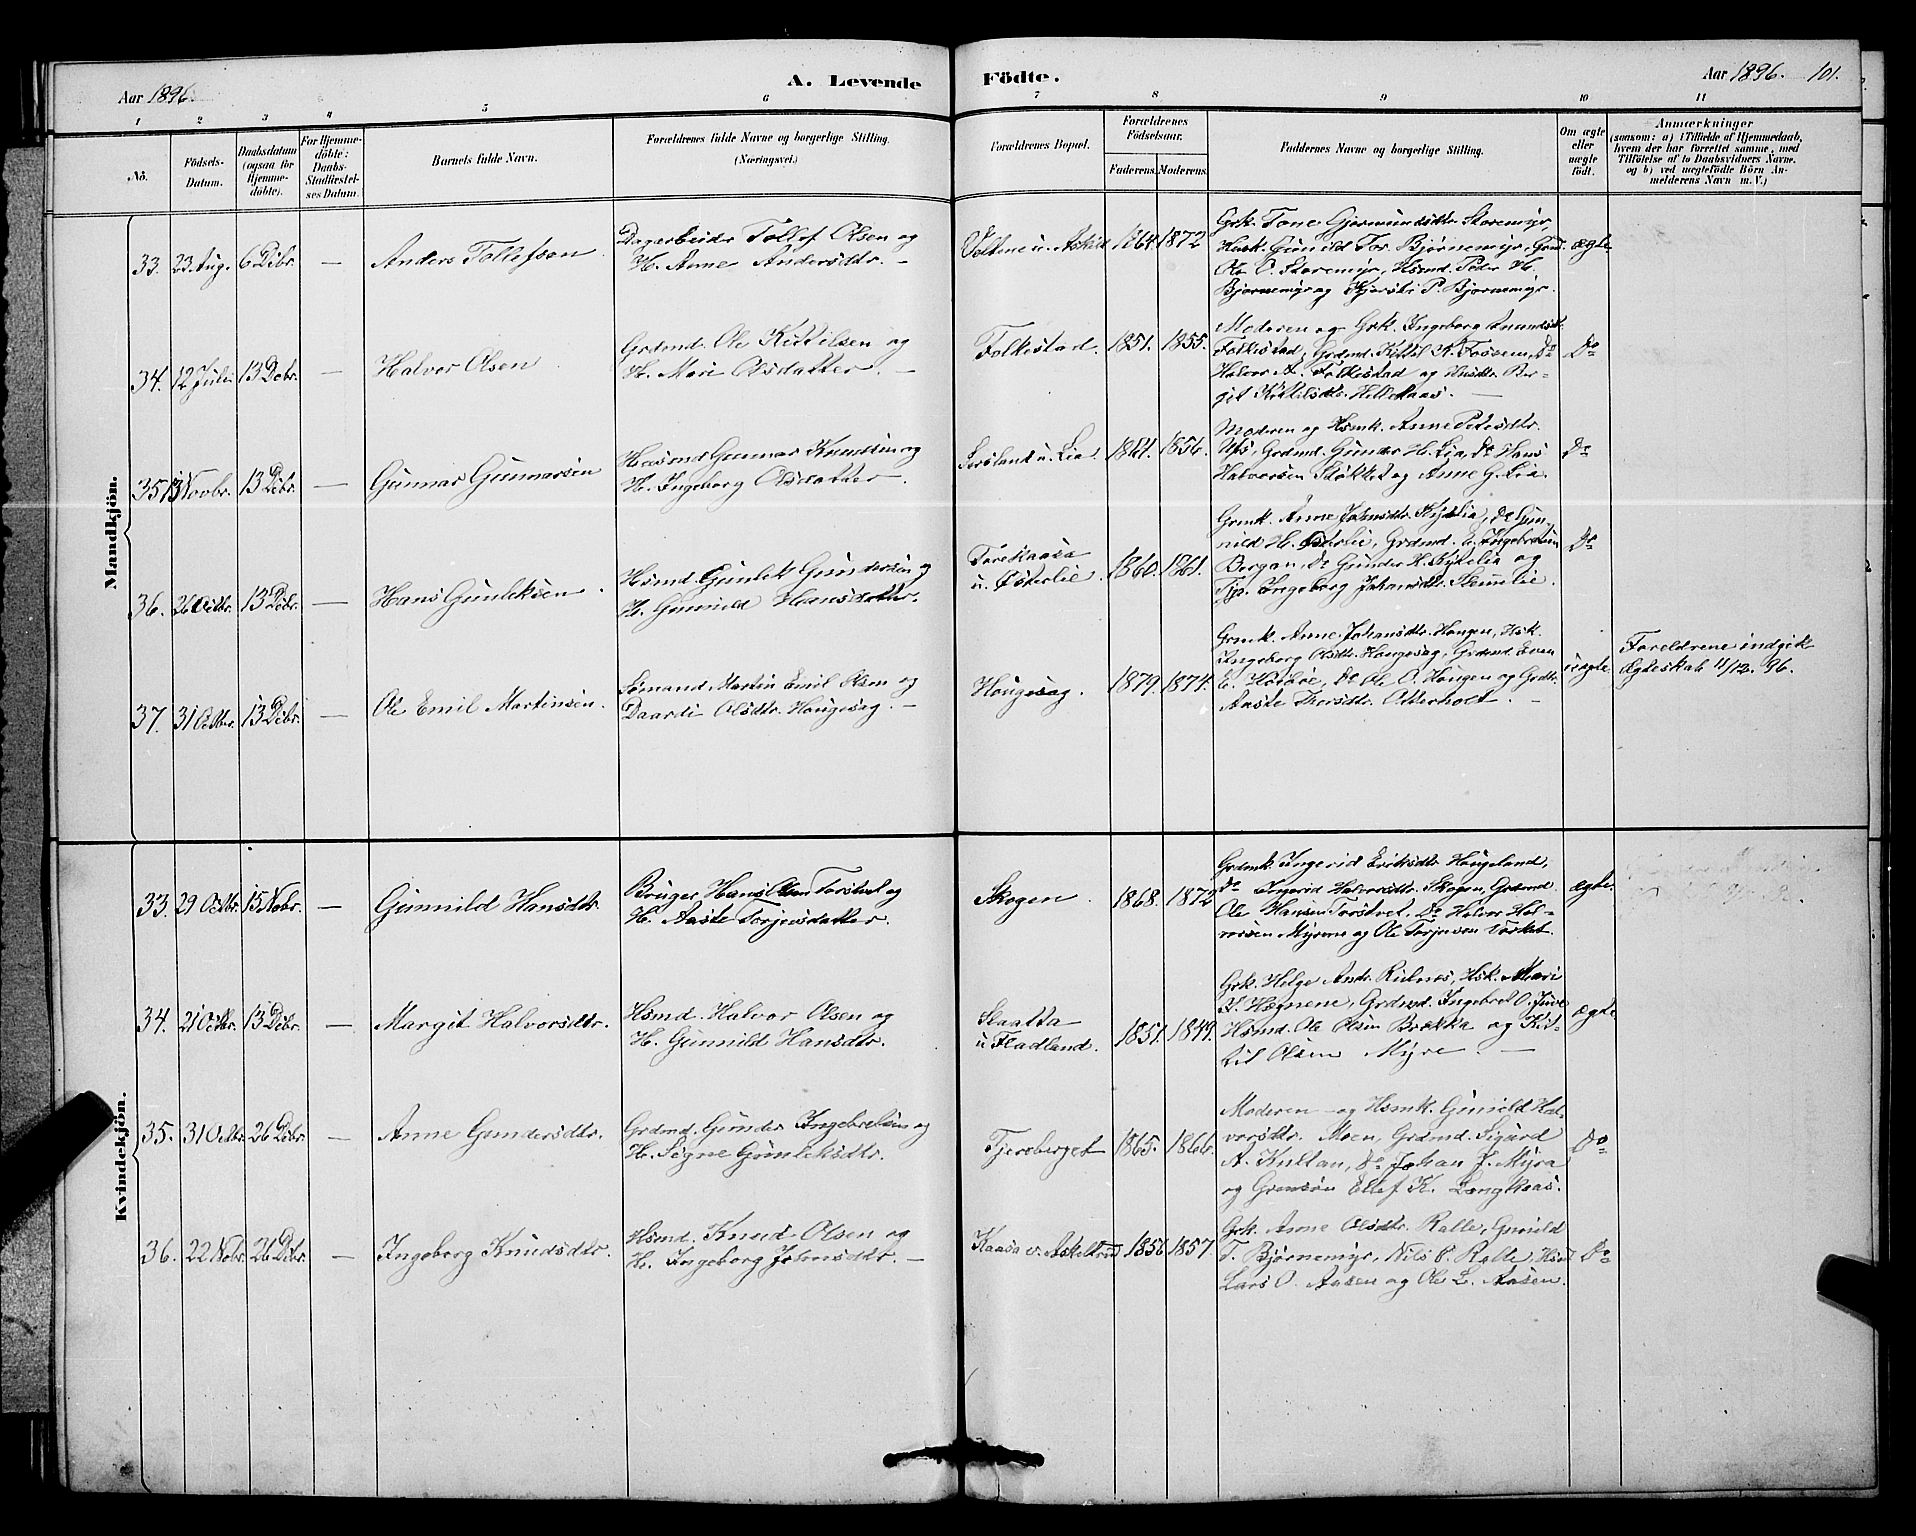 Aar 1896.
A. Levende Födte.
Aar 1896. 101.
1 2 3 4 5 6 7 8 9 10 11
No.
Födsels-
Datum.
Daabsdatum
(ogsaa for
Hjemme-
döbte).
For Hjemme-
döbte:
Daabs-
Stadfæstel-
ses Datum.
Barnets fulde Navn.
Forældrenes fulde Navne og borgerlige Stilling.
(Næringsvei.)
Forældrenes Bopæl.
Forældrenes
Födselsaar.
Faderens. Moderens.
Faddernes Navne og borgerlige Stilling.
Om ægte
eller
uægte
födt.
Anmærkninger
(saasom: a) i Tilfælde af Hjemmedaab,
hvem der har forrettet samme, med
Tilföielse af to Daabsvidners Navne.
og b) ved uægtefödte Börn An-
melderens Navn m. V.)
Mandkjön.
33. 23 Aug. 6 Debr. — Anders Tollefsen
Dagarbeider Tollef Olsen og
H. Anne Andersdtr. —
1864 1872
Grk. Tone Gjermundsdtr. Storemyr,
Husk. Gunild Tor. Bjørnemyr, Grd.
Ole O. Storemyr, Hsmd. Peder H.
Bjørnemyr og Kjersti P. Bjørnemyr.
ægte
34. 12 Juli 13 Debr. — Halvor Olsen
Grdmd. Ole Kittilsen og
H. Mari Olsdatter. —
Folkestad. 1851. 1855.
Moderen og Grk. Ingeborg
Folkestad, Grdmd. Kittil K. Fossem, Do
Halvor A. Folkestad og
git Kittilsdtr. Hellekaas. —
Do
35. 13 Novbr. 13 Debr. — Gunnar Gunnarsen
Husmd Gunnar Knudsen og
H. Ingeborg Olsdatter.
u. Lia. 1841. 1856.
Moderen og Hsmk. Anne
Grdmd. Gunder H. Lia, Do Hans
Halvorsen Stokket og Anne G. Lia.
Do
36. 26 Octbr. 13 Debr. — Hans Gunleksen
Hsmd. Gunlek Gundersen og
H. Gunild Hansdatter.
Torekaasa
u. Østerlie. 1860. 1861.
Grmk. Anne Johnsdtr. Do Gun-
nild H. Østerlie, Grdmd. E. Ingebretsen
Bergan, Do Gunder H. og
Tjp. Ingeborg Johansdtr.
Do
37. 31 Octbr. 13 Debr. — Ole Emil Martinsen.
Sømand Martin Emil Olsen og
Daardi Olsdtr. Hougesag. —
Hougesag. 1879. 1874.
Grmk. Anne Johansdtr. Hougen, Hsk.
Ingeborg Olsdtr. Hougesag, Grdmd. Even
E. Do Ole O. Hougen og Grdtr.
Aaste Thorsdtr. Otterholt. —
uægte
Foreldrene indgik
Ægteskab 11/12. 96.
Kvindekjön.
33. 29 Octbr. 15 Nobr. — Gunnild Hansdtr.
Bruger Hans Olsen Torstvet og
H. Aaste Torjensdatter.
Skogen 1868. 1872
Grdmk. Ingerid Eriksdtr. Haugeland,
Do Ingerid Halvorsdtr. Skogen, Grdmd.
Ole Hansen Torstvet, Do Halvor Hal-
vorsen Myrene og Ole Torjensen
ægte
34. 21 Octbr. 13 Debr. — Margit Halvorsdtr.
Hsmd. Halvor Olsen og
H. Gunnild Hansdtr.
Slaatta
u Fladland. 1851. 1849.
Grk. Helge Andr. Hsk. Mari
Hægnene, Grdmd. Ingebret O. Juve
Hsmd. Ole Olsen Brekka og Kit-
til Olsen Myre. —
ægte
35. 31 Octbr. 26 Debr. — Anne Gundersdtr.
Grdmd. Gunder Ingebretsen og
H. Signe Gunleksdtr.
Tjereberget 1865. 1866.
Moderen — og Hsmk. Gunild Hal-
vorsdtr. Moen, Grdmd. Sigurd
A. Kultan, Do Johan J. Myra
og Grmsøn Ellef K. Langkaas.
Do
36. 22 Nobr. 26 Debr. — Ingeborg Knudsdtr.
Hsmd. Knud Olsen og
H. Ingeborg Johnsdtr. —
Kaasa 1856 1857.
Grk. Anne Olsdtr. Ralle, Gunild
T. Bjørnemyr, Nils P. Ralle, Hsmd
Lars O. Aasen og Ole L. Aasen.
Do